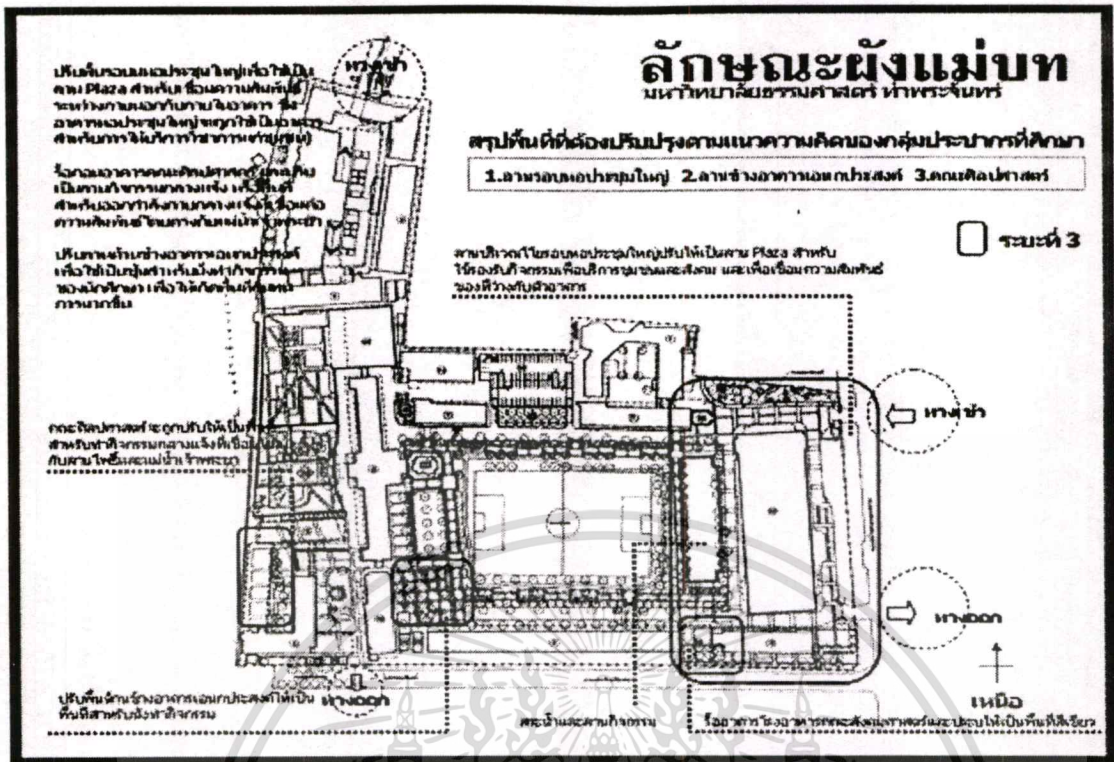 ลักษณะผังแม่บท
มหาวิทยาลัยธรรมศาสตร์ ท่าพระจันทร์
สรุปพื้นที่ที่ต้องปรับปรุงตามแนวความคิดของกลุ่มประชากรที่ศึกษา
1.ลานรอบหอประชุมใหญ่ 2.ลานข้างอาคารเอนกประสงค์ 3.คณะศิลปศาสตร์
ระยะที่ 3
ปรับพื้นรอบหอประชุมใหญ่เพื่อใช้เป็น
ลาน Plaza สำหรับเชื่อมความสัมพันธ์
ระหว่างภายนอกกับภายในอาคาร ซึ่ง
อาคารหอประชุมใหญ่จะถูกใช้เป็นอาคาร
สำหรับการให้บริการวิชาการแก่ชุมชน
รื้อถอนอาคารคณะศิลปศาสตร์
เป็นลานกิจกรรมกลางแจ้ง
สำหรับออกกำลังกายกลางแจ้ง
ความสัมพันธ์โดยตรงกับแม่น้ำเจ้าพระยา
ปรับลานด้านข้างอาคารเอนกประสงค์
เพื่อใช้เป็นซุ้มสำหรับนั่งทำกิจกรรม
ของนักศึกษา เพื่อให้เกิดพื้นที่
ภาพมากขึ้น
ทางเข้า
ลานบริเวณโดยรอบหอประชุมใหญ่ปรับให้เป็นลาน Plaza สำหรับ
ใช้รองรับกิจกรรมเพื่อบริการชุมชนและสังคม และเพื่อเชื่อมความสัมพันธ์
ของที่ว่างกับตัวอาคาร
ทางเข้า
คณะศิลปศาสตร์จะถูกปรับให้เป็นพื้นที่
สำหรับทำกิจกรรมกลางแจ้งที่เชื่อม
กับลานโพธิ์และแม่น้ำเจ้าพระยา
ทางออก
เหนือ
ทางออก
ปรับพื้นที่ด้านข้างอาคารเอนกประสงค์ให้เป็น
พื้นที่สำหรับนั่งทำกิจกรรม
สระน้ำและลานกิจกรรม
รื้ออาคารโรงอาหารคณะสังคมศาสตร์และปรับให้เป็นพื้นที่สีเขียว